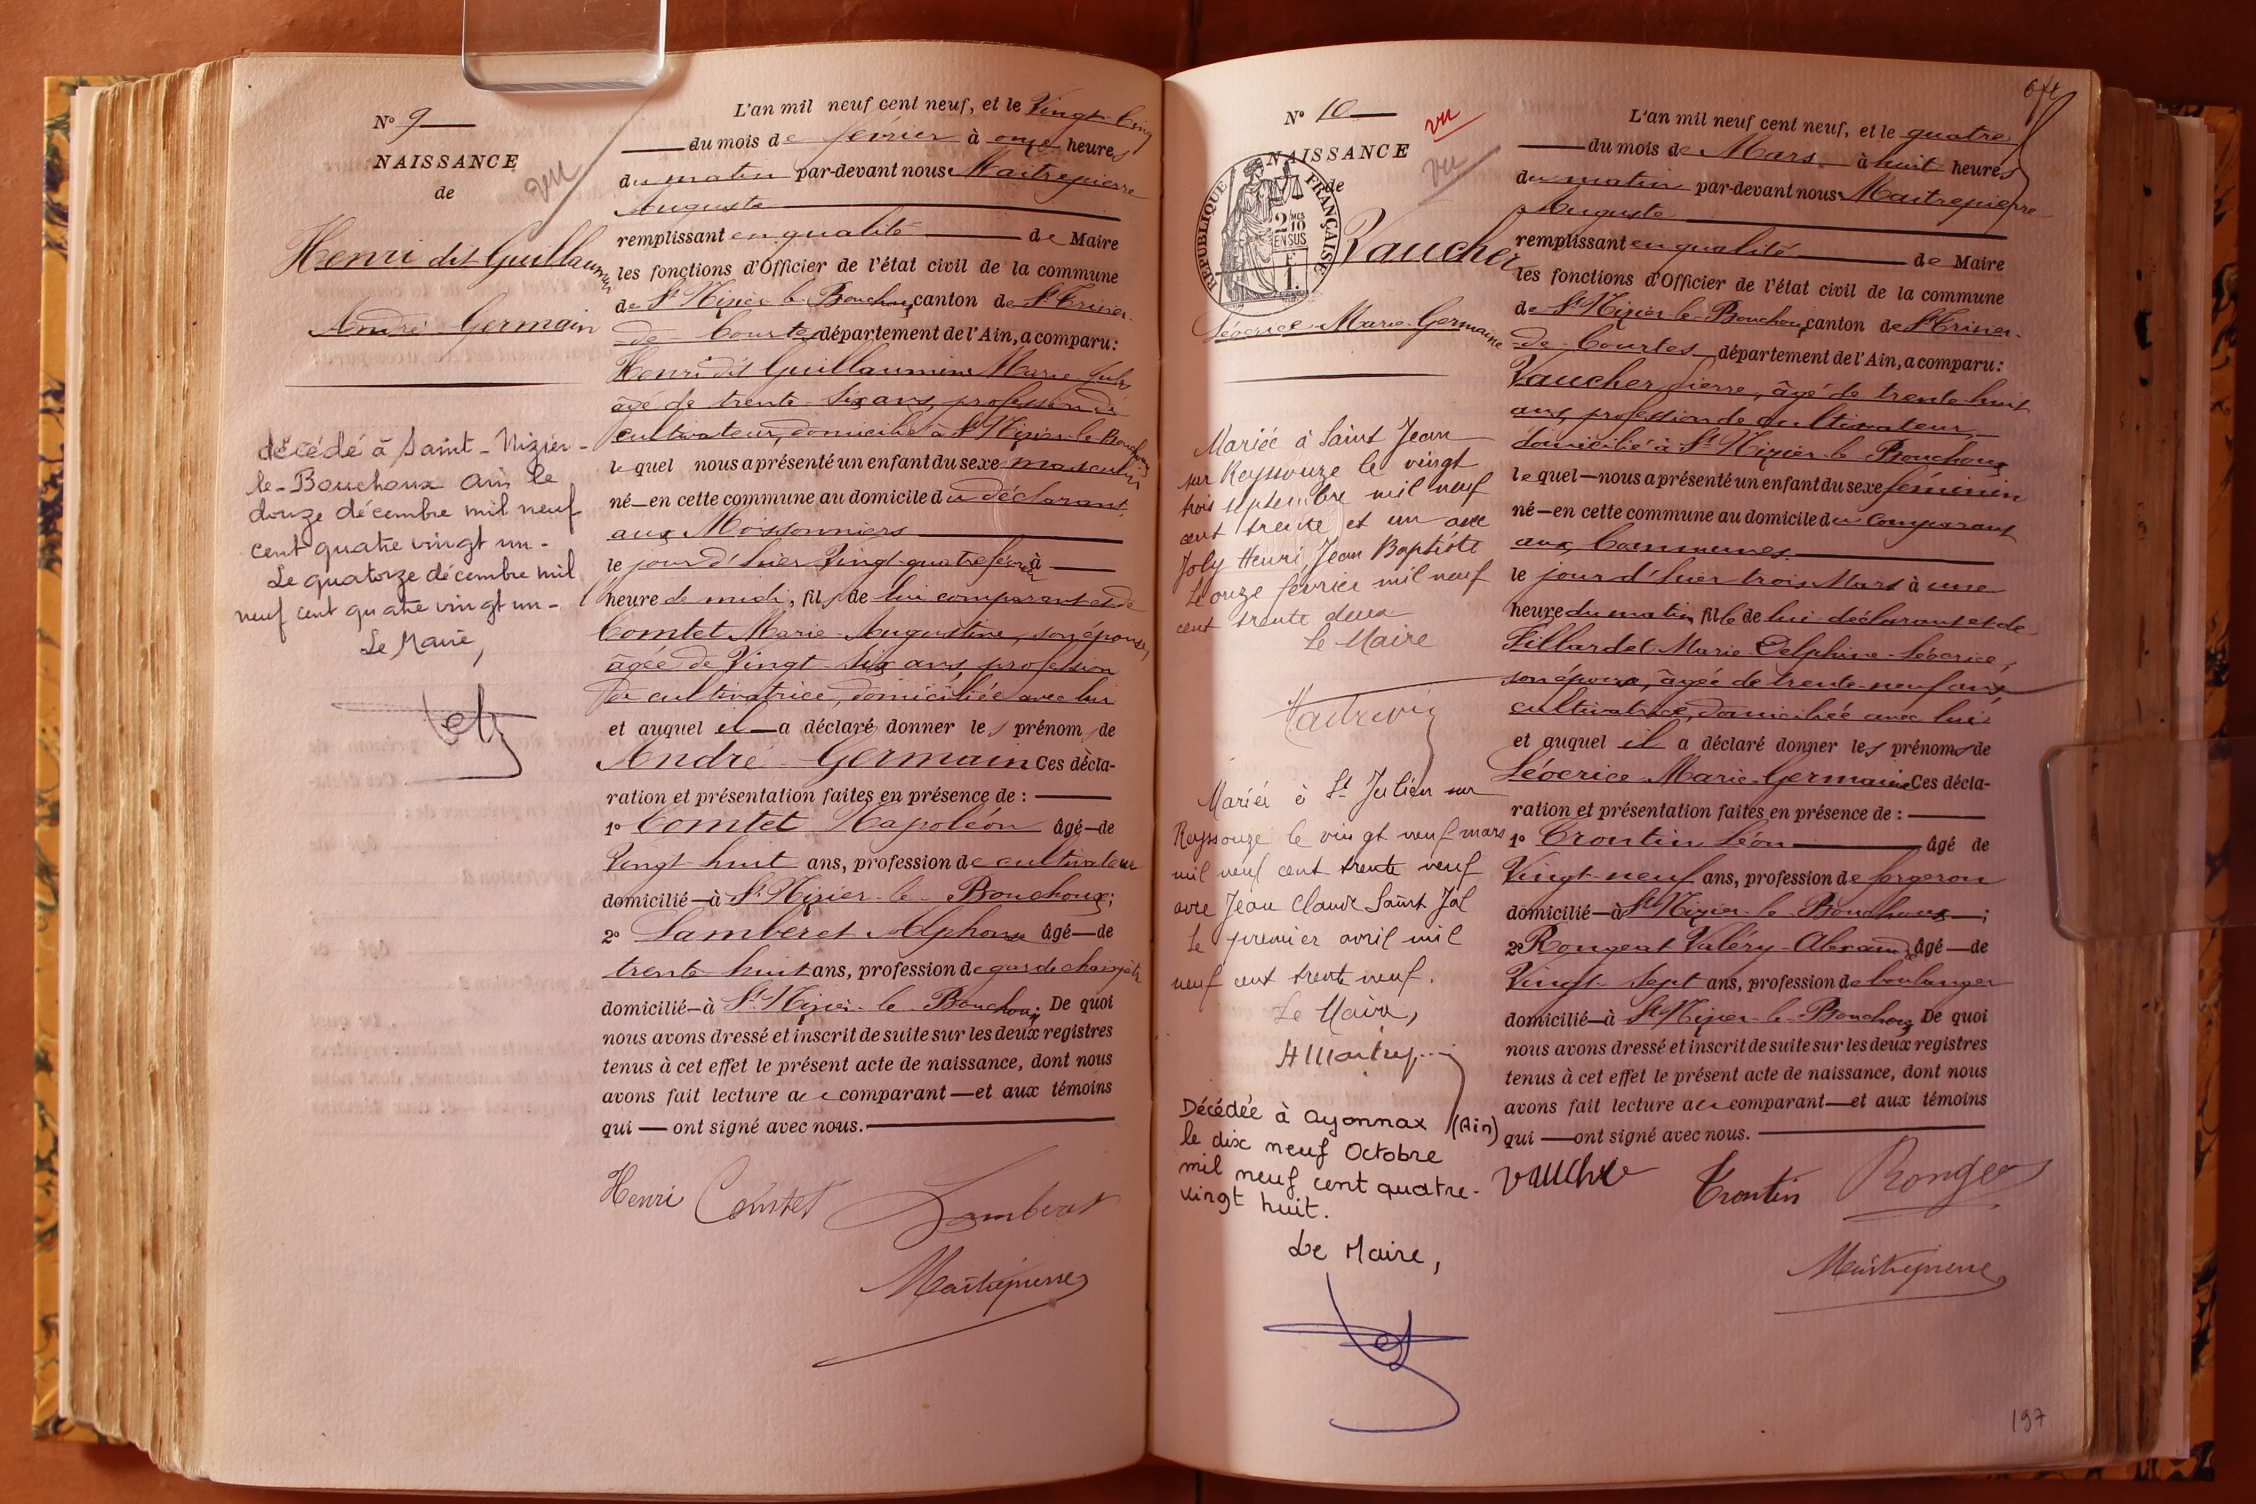 N° 9
NAISSANCE
de
vu
Henri dit Guillaumin
André Germain
décédé à Saint-Nizier-
le-Bouchoux Ain le
douze décembre mil neuf
cent quatre vingt un-
Le quatorze décembre mil
neuf cent quatre vingt un-
Le Maire,
L'an mil neuf cent neuf, et le Vingt-Cinq
du mois de février à onze heures
du matin par-devant nous Maitrepierre
Auguste
remplissant en qualité de Maire
les fonctions d'Officier de l'état civil de la commune
de St Nizier le Bouchoux canton de St Trivier-
de Courtes département de l'Ain, a comparu:
Henri dit Guillaumin Marie Jules
âgé de trente six ans, profession de
cultivateur, domicilié à St Nizier-le-Bouchoux
lequel nous a présenté un enfant du sexe masculin
né—en cette commune au domicile du déclarant
aux Moissonniers
le jour d'hier Vingt-quatre février à
heure de midi, fils de lui comparant et de
Comtet Marie-Augustine, son épouse,
âgée de Vingt-six ans profession
de cultivatrice, domiciliée avec lui
et auquel il—a déclaré donner les prénoms de
André-Germain Ces décla-
ration et présentation faites en présence de :
1° Comtet Napoléon âgé—de
Vingt-huit ans, profession de cultivateur
domicilié—à St Nizier-le-Bouchoux;
2° Lamberet Alphonse âgé—de
trente huit ans, profession de garde champêtre
domicilié—à St Nizier-le-Bouchoux. De quoi
nous avons dressé et inscrit de suite sur les deux registres
tenus à cet effet le présent acte de naissance, dont nous
avons fait lecture au comparant—et aux témoins
qui — ont signé avec nous.
Henri Comtet Lamberet
Maitrepierre
N° 10
vu
NAISSANCE
vu
de
RÉPUBLIQUE FRANÇAISE
2/10 EN SUS
1 F.
Vaucher
Léocrice-Marie-Germaine
Mariée à Saint Jean
sur Reyssouze le vingt
trois septembre mil neuf
cent trente et un avec
Joly Henri, Jean Baptiste
Le onze février mil neuf
cent trente deux
Le Maire
Mariée à St Julien sur
Reyssouze le vingt neuf mars
mil neuf cent trente neuf
avec Jean Claude Saint Jal
Le premier avril mil
neuf cent trente neuf.
Le Maire,
Décédée à Oyonnax (Ain)
le dix neuf Octobre
mil neuf cent quatre-
vingt huit.
Le Maire,
L'an mil neuf cent neuf, et le quatre
du mois de Mars à huit heures
du matin par-devant nous Maitrepierre
Auguste
remplissant en qualité de Maire
les fonctions d'Officier de l'état civil de la commune
de St Nizier-le-Bouchoux canton de St Trivier-
de-Courtes département de l'Ain, a comparu:
Vaucher Pierre, âgé de trente-huit
ans, profession de cultivateur
domicilié à St Nizier-le-Bouchoux
lequel—nous a présenté un enfant du sexe féminin
né—en cette commune au domicile du Comparant
aux Communes
le jour d'hier trois Mars à une
heure du matin fille de lui déclarant et de
Fillardet Marie-Delphine-Léocrice,
son épouse, âgée de trente-neuf ans
cultivatrice, domiciliée avec lui
et auquel il a déclaré donner les prénoms de
Léocrice-Marie-Germaine Ces décla-
ration et présentation faites en présence de :
1° Trontin Léon âgé de
Vingt-neuf ans, profession de forgeron
domicilié—à St Nizier-le-Bouchoux—;
2° Rongeat Valéry- âgé—de
Vingt-sept ans, profession de boulanger
domicilié—à St Nizier-le-Bouchoux De quoi
nous avons dressé et inscrit de suite sur les deux registres
tenus à cet effet le présent acte de naissance, dont nous
avons fait lecture au comparant—et aux témoins
qui —ont signé avec nous.
Vaucher Trontin Rongeat
Maitrepierre
197